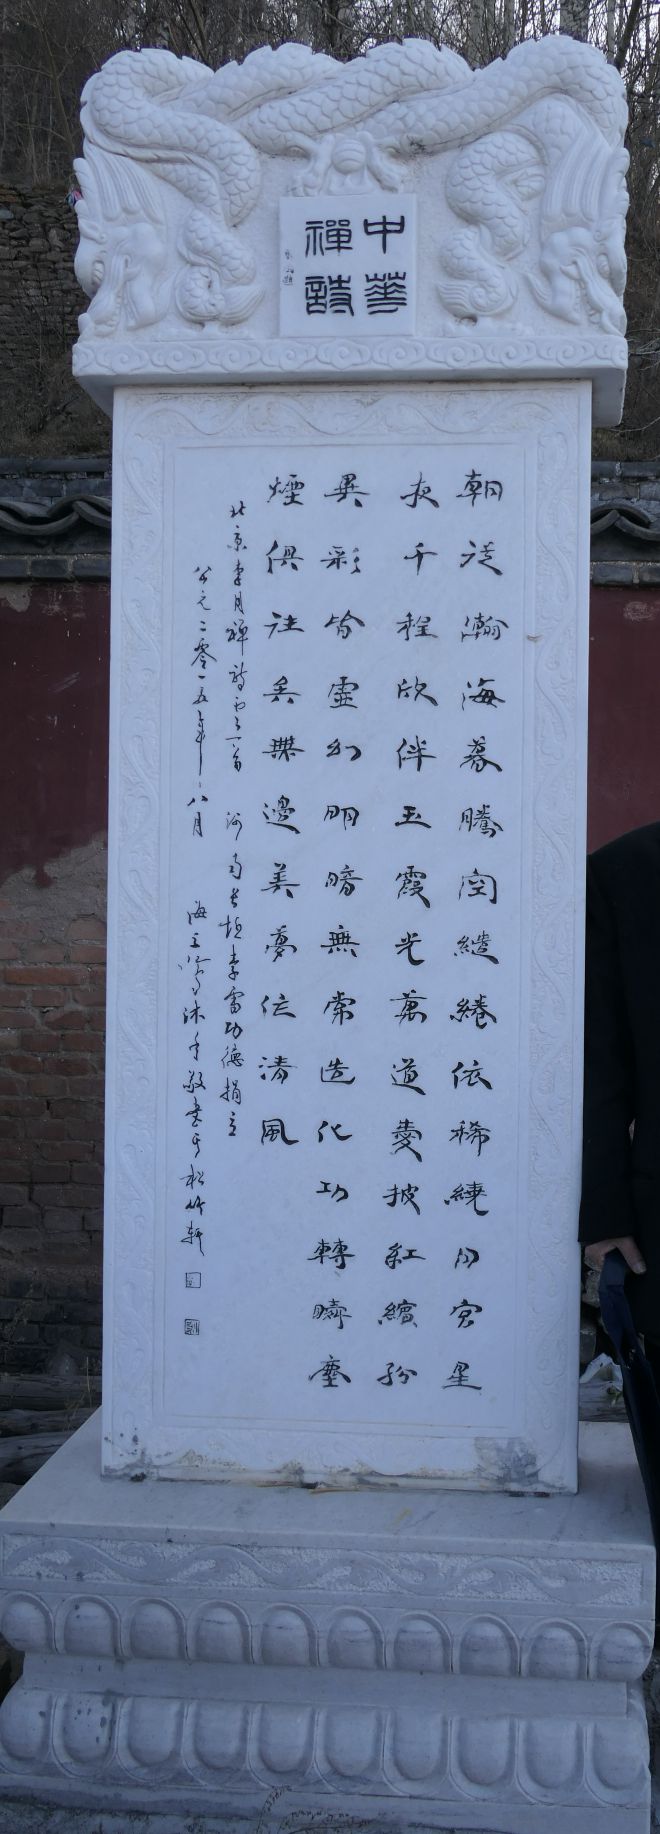 中華
禪詩
朝從瀚海暮騰空繾綣依稀繞月宮星
夜千程欣伴玉霞光萬道愛披紅繽紛
異彩皆靈幻明暗無常造化功轉瞬塵
煙俱往矣無邊美夢任清風
北京李月禪詩 首 河南長垣李雷功德捐立
公元二零一五年八月 海 沐手敬書于松竹軒